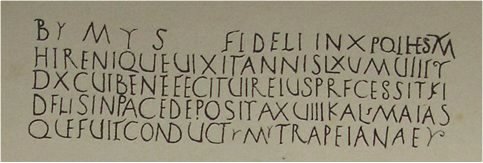 BYMYS FIDELI INXPOIHESYM
HIRENIQUEUIXITANNISLXUMUIIIIT
DXCUIBENEFECITUIREIUSPRECESSITFI
DELISINPACEDEPOSITAXUIIIIKALMAIAS
QUEFUITCONDUCTYMYTRAPEIANAEY